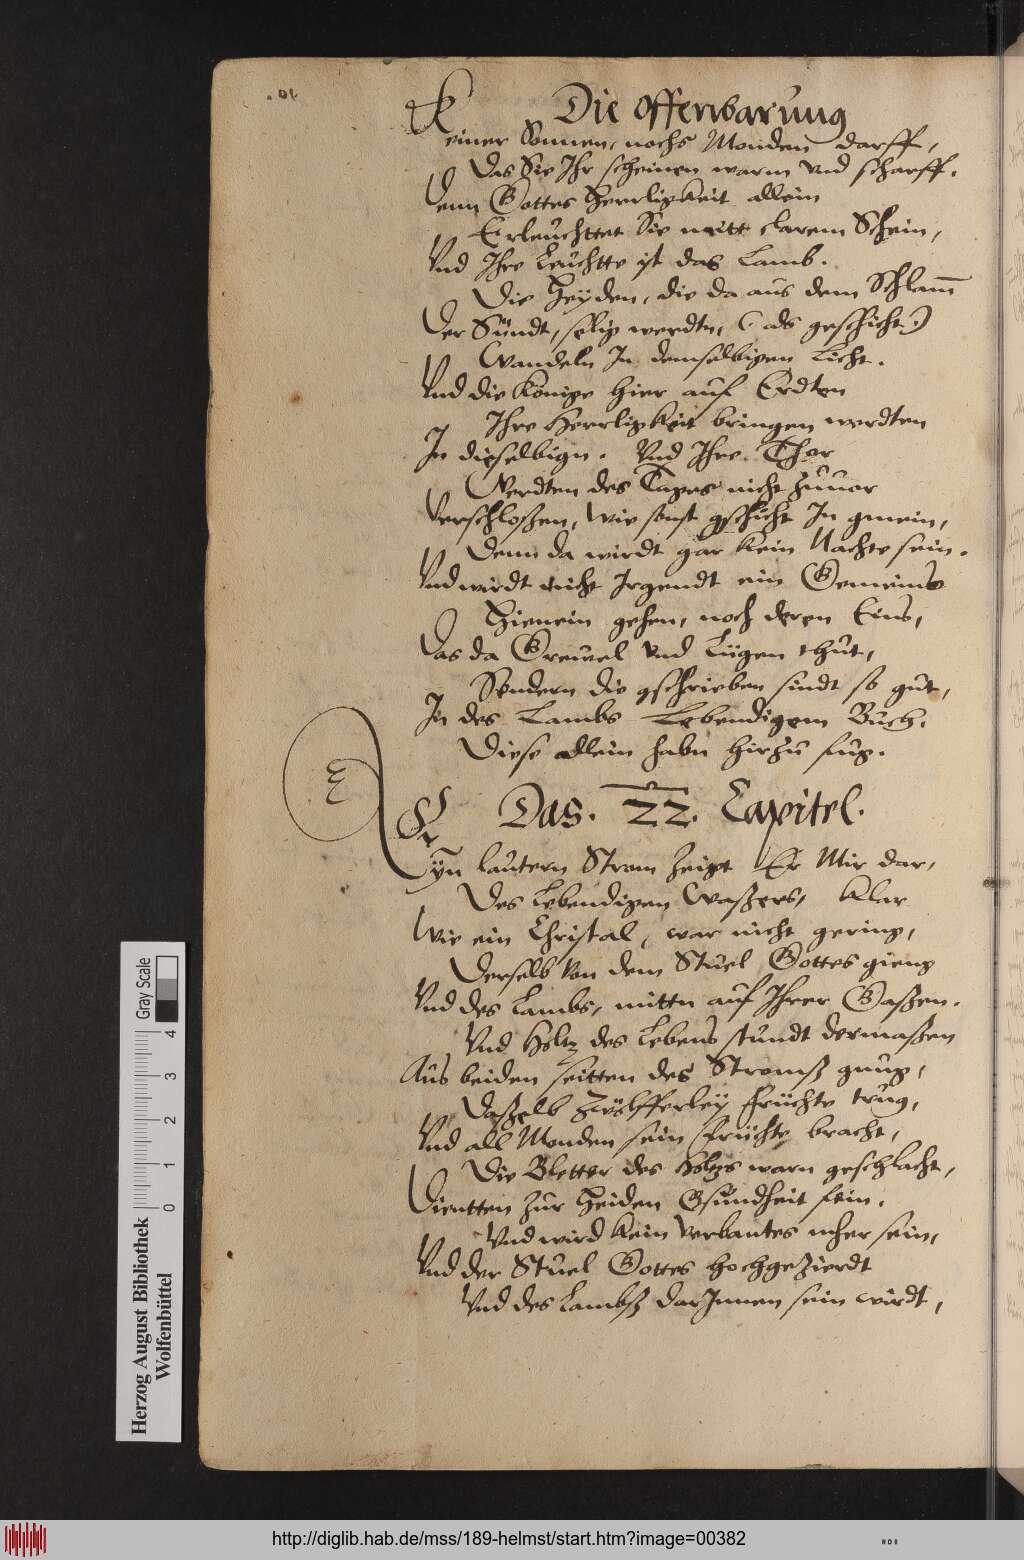 Die Offenbarung
Keiner Sonnen, nochs Monden darff,
Das Sie Ihr scheinen warm vnd scharff.
Denn Gottes Herrligkeit allein
Erleuchttet Sie mitt clarem Schein,
Vnd Ihre Leuchtte ist das Lamb.
Die Heyden, die da aus dem Schlam̄
Der Sündt, selig werdtn, (als geschicht.)
Wandeln In demselbigen Licht.
Vnd die Könige hier auf Erdten
Ihre Herrligkeit bringen werdten
In dieselbign. Vnd Ihre Thor
Werdten des Tages nicht zuuor
Verschloßen, Wie sonst gschicht In gmein,
Denn da wirdt gar kein Nachte sein.
Vnd wirdt nicht Irgendt ein Gemeins
Hienein gehen, noch deren Eins,
Das da Grewel vnd Lügen thut,
Sondern die gschrieben sindt so gut,
In des Lambs Lebendigem Buch.
Diese allein habn hirzu fug.
Das. 22. Capitel.
Er
Eyn lautern Strom zeigt Er Mir dar,
Des Lebendigen Waßers, klar
Wie ein Christal, war nicht gering,
Derselb von dem Stuel Gottes gieng
Vnd des Lambs, mittn auf Ihrer Gaßen.
Vnd Holtz des Lebens stundt dermaßen
Aus beiden seitten des Stromß gnug,
Daßelb zwölfferley früchte trug,
Vnd all Monden sein früchte bracht,
Die Bletter des Holtzs warn geschlacht,
Dientten zur Heiden Gsundheit fein.
Vnd wird kein verbantes mher sein,
Vnd der Stuel Gottes hochgezierdt
Vnd des Lambß darJnnen sein wirdt,
Herzog August Bibliothek
Wolfenbüttel
0 1 2 3 4
Gray Scale
http://diglib.hab.de/mss/189-helmst/start.htm?image=00382